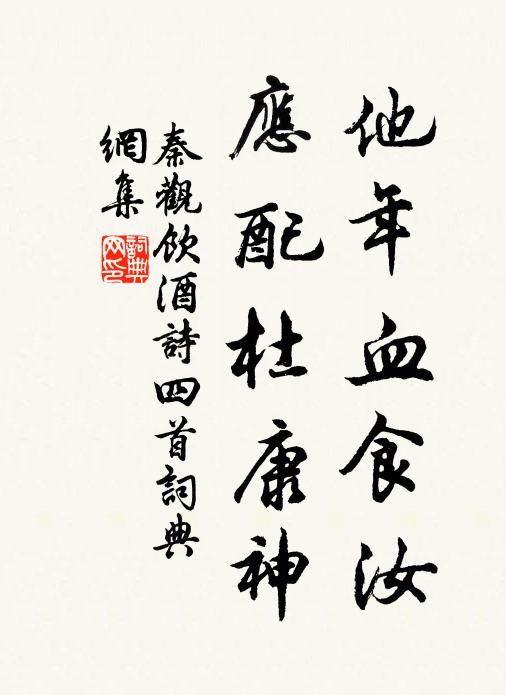 他年血食汝
應配杜康神
秦觀飲酒詩四首詞典
網集
詞典
网印